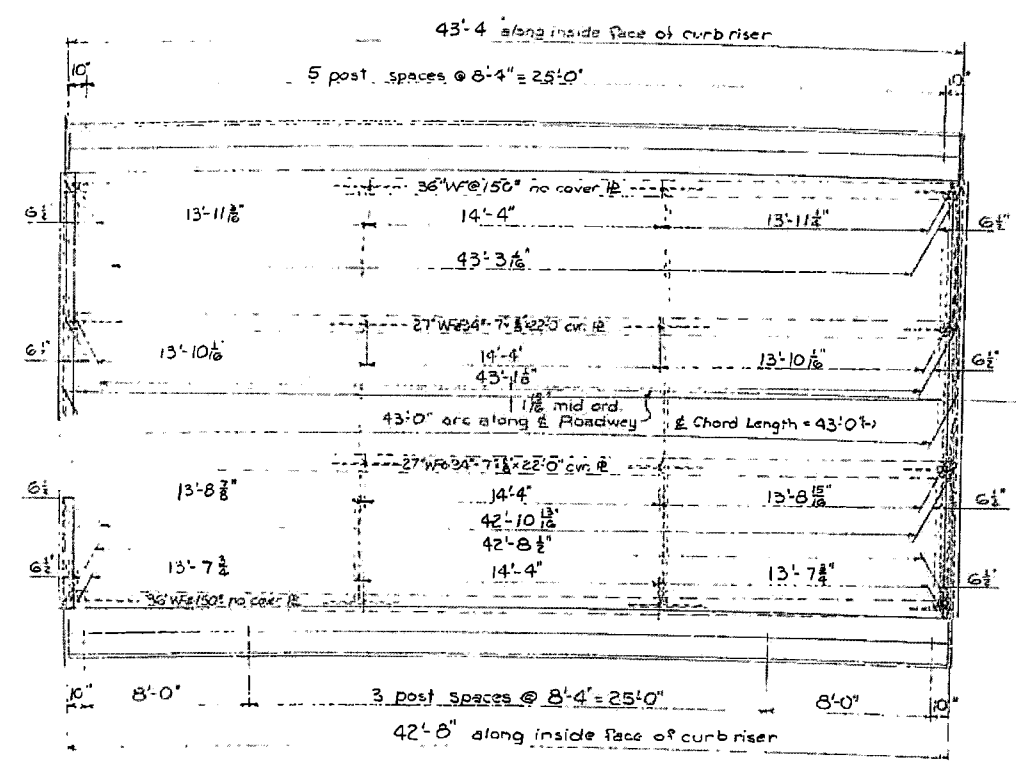 43'-4" along inside face of curb riser
10"
5 post spaces @ 8'-4" = 25'-0"
10"
36"WF@150# no cover PL
6½"
13'-11 3/16"
14'-4"
13'-11¼"
6½"
43'-3 1/16"
27"WF@94#-7"x⅝"x22'-0" cvr. PL
13'-10 1/16"
14'-4"
13'-10 1/16"
6½"
43'-1⅛"
mid ord.
43'-0" arc along ℄ Roadway
℄ Chord Length = 43'-0"(-)
27"WF@94#-7"x⅝"x22'-0" cvr. PL
6½"
13'-8⅞"
14'-4"
13'-8 15/16"
6½"
42'-10 13/16"
42'-8½"
6½"
13'-7¾
14'-4"
13'-7¾"
6½"
36"WF@150# no cover PL
10"
8'-0"
3 post spaces @ 8'-4" = 25'-0"
8'-0"
10"
42'-8" along inside face of curb riser